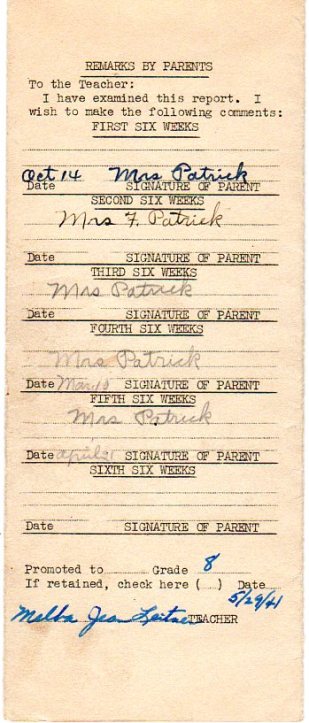 REMARKS BY PARENTS
To the Teacher:
I have examined this report. I
wish to make the following comments:
FIRST SIX WEEKS
Oct 14 Mrs Patrick
Date SIGNATURE OF PARENT
SECOND SIX WEEKS
Mrs F. Patrick
Date SIGNATURE OF PARENT
THIRD SIX WEEKS
Mrs Patrick
Date SIGNATURE OF PARENT
FOURTH SIX WEEKS
Mrs Patrick
Date Mar 10 SIGNATURE OF PARENT
FIFTH SIX WEEKS
Mrs Patrick
Date April 21 SIGNATURE OF PARENT
SIXTH SIX WEEKS
Date SIGNATURE OF PARENT
Promoted to Grade 8
If retained, check here ( ) Date
5/29/41
Melba Jean TEACHER